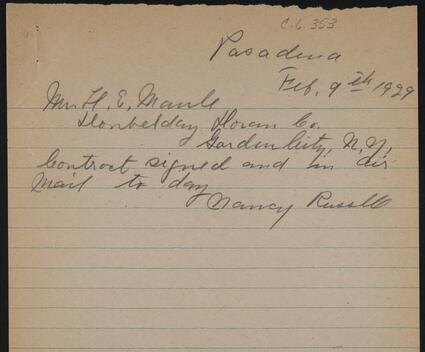 C.6.353
Pasadena
Feb. 9th 1929
Mr. H. E. Maule
Doubelday Doran Co.
Garden City, N.Y.
Contract signed and in air
Mail to day
Nancy Russell